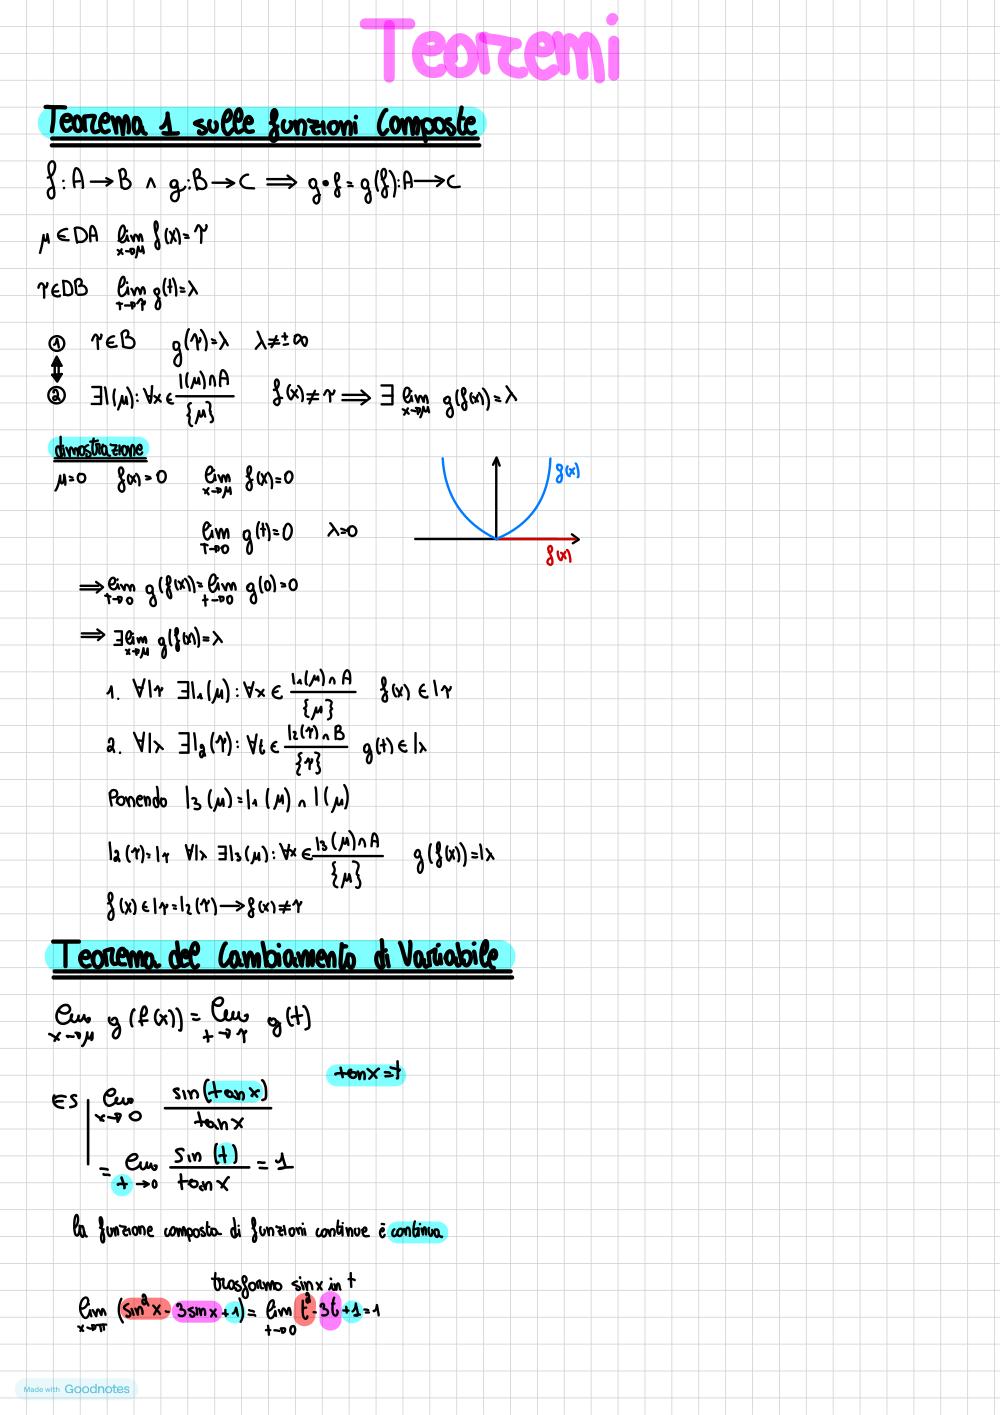 Teoremi
Teorema 1 sulle funzioni Composte
f: A → B ∧ g: B → C ⟹ g∘f = g(f): A → C
μ ∈ DA lim x→μ f(x) = τ
τ ∈ DB lim t→τ g(t) = λ
① τ ∈ B g(τ) = λ λ ≠ ±∞
② ∃I(μ): ∀x ∈ I(μ)∩A / {μ} f(x) ≠ τ ⟹ ∃ lim x→μ g(f(x)) = λ
dimostrazione
μ=0 f(x)=0 lim x→μ f(x)=0
g(x)
lim t→0 g(t)=0 λ=0
f(x)
⟹ lim t→0 g(f(x)) = lim t→0 g(0)=0
⟹ ∃ lim x→μ g(f(x)) = λ
1. ∀Iτ ∃I₁(μ): ∀x ∈ I₁(μ)∩A / {μ} f(x) ∈ Iτ
2. ∀Iλ ∃I₂(τ): ∀t ∈ I₂(τ)∩B / {τ} g(t) ∈ Iλ
Ponendo I₃(μ) = I₁(μ) ∩ I(μ)
I₂(τ)=Iτ ∀Iλ ∃I₃(μ): ∀x ∈ I₃(μ)∩A / {μ} g(f(x)) = Iλ
f(x) ∈ Iτ = I₂(τ) → f(x) ≠ τ
Teorema del Cambiamento di Variabile
lim x→μ g(f(x)) = lim t→τ g(t)
tanx = t
ES lim x→0 sin(tanx) / tanx
= lim t→0 sin(t) / tanx = 1
la funzione composta di funzioni continue è continua
trasformo sinx in t
lim x→π (sin²x - 3sinx + 1) = lim t→0 t² - 3t + 1 = 1
Made with Goodnotes